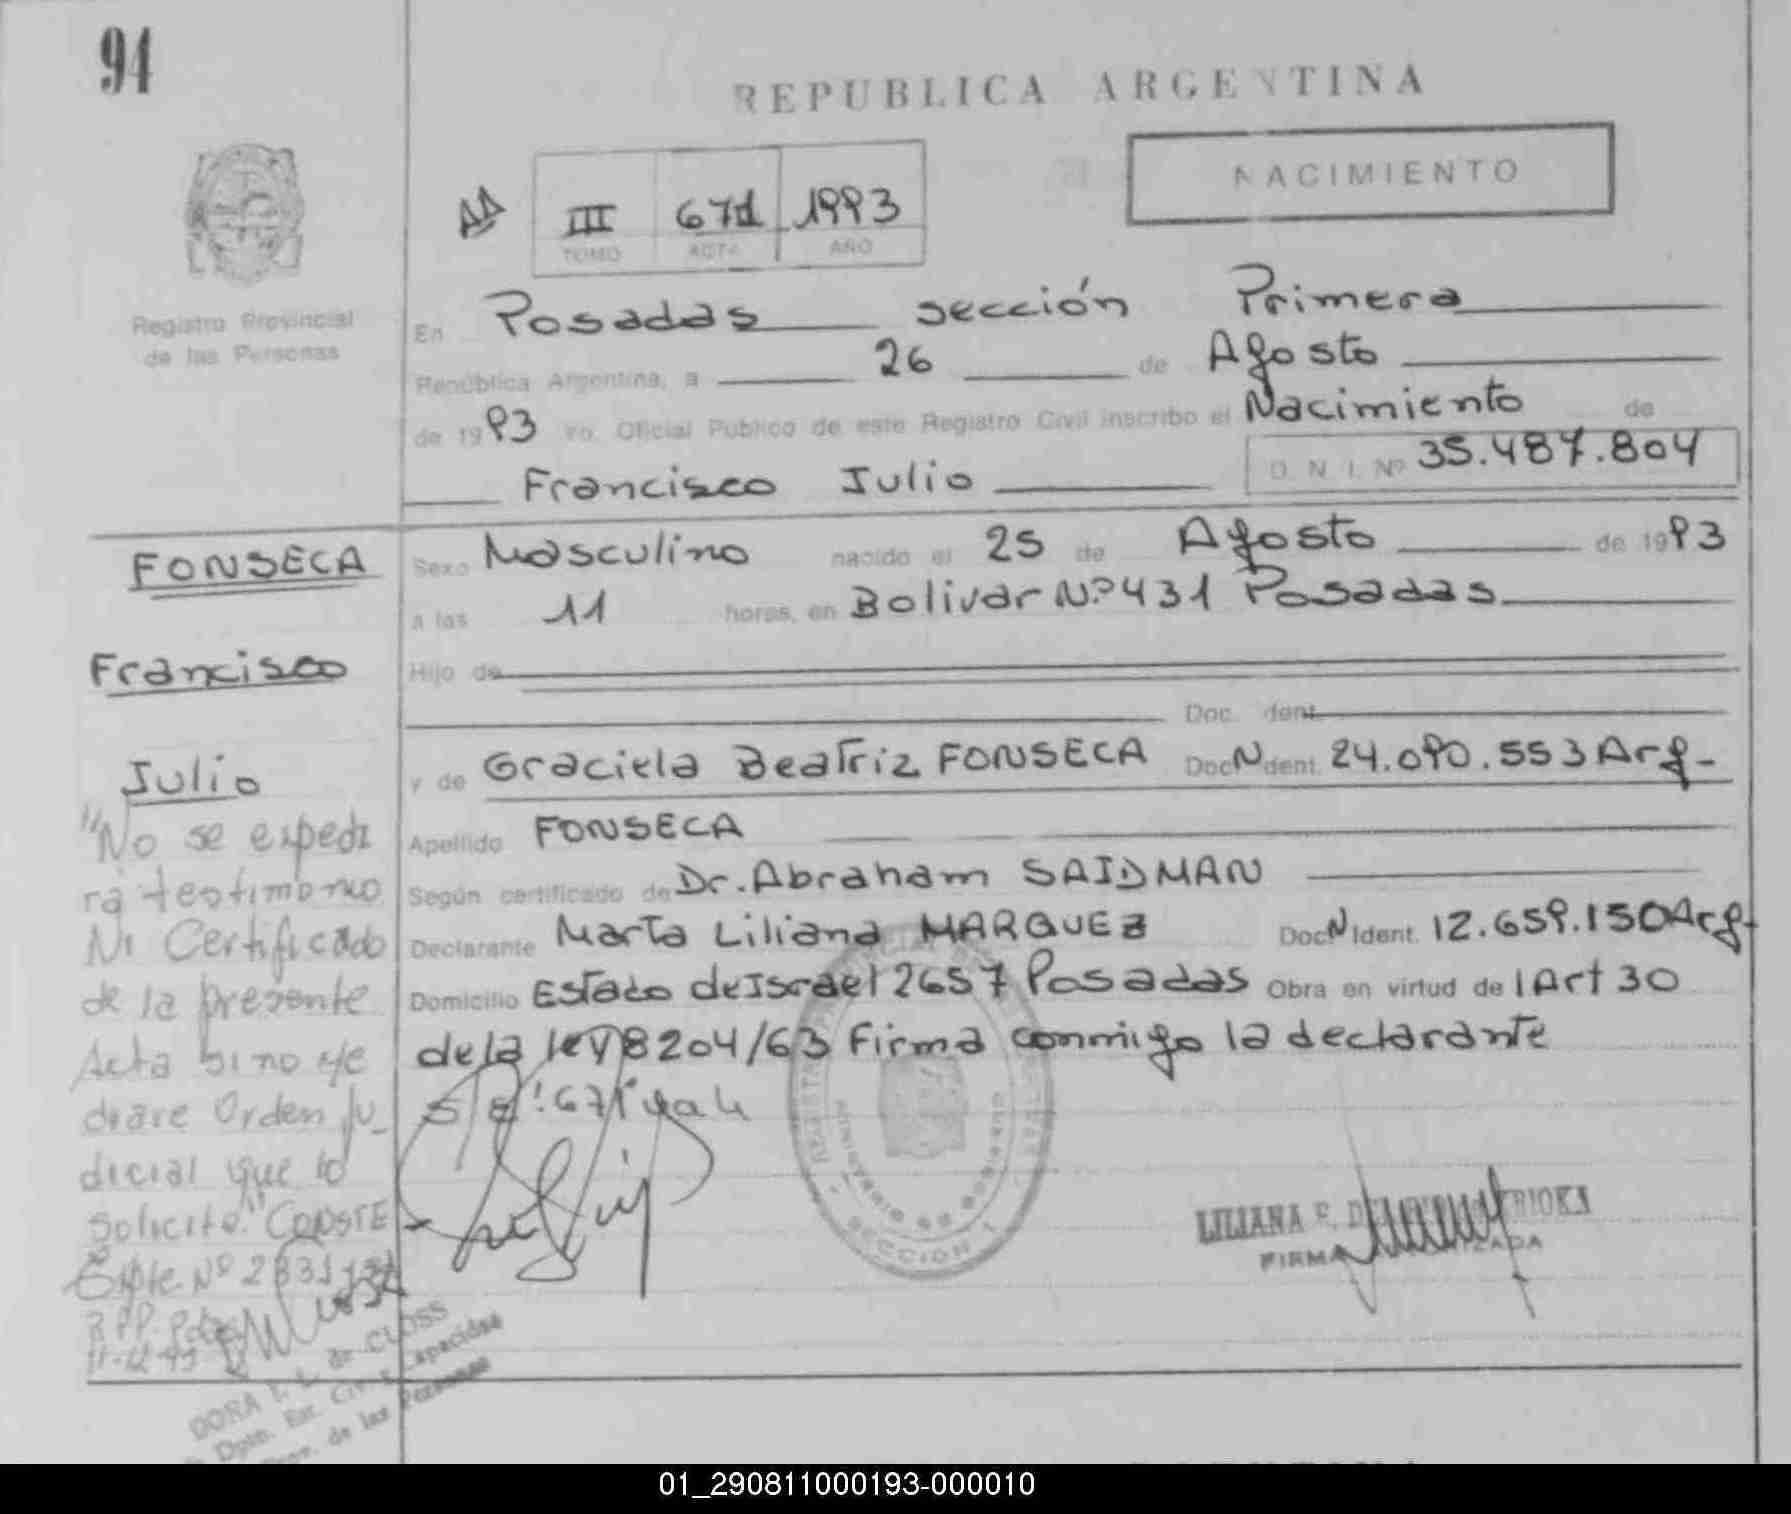 94
REPUBLICA ARGENTINA
NACIMIENTO
III 671 1993
TOMO ACTA AÑO
Registro Provincial
de las Personas
En Posadas sección Primera
República Argentina, a 26 de Agosto
de 1993 Yo, Oficial Público de este Registro Civil inscribo el Nacimiento de
Francisco Julio D. N. I. Nº 35.487.804
FONSECA
Francisco
Julio
Sexo Masculino nacido el 25 de Agosto de 1993
a las 11 horas, en Bolivar N.º 431 Posadas
Hijo de
Doc. Ident.
y de Graciela Beatriz FONSECA Doc N Ident. 24.090.553 Arg.
Apellido FONSECA
Según certificado de Dr. Abraham SAIDMAN
Declarante Marta Liliana MARQUEZ Doc N Ident. 12.659.150 Arg.
Domicilio Estado de Israel 2657 Posadas Obra en virtud de l Art 30
de la ley 8204/63 Firma conmigo la declarante
"No se expedi
rá testimonio
Ni Certificado
de la presente
Acta si no
Orden Ju_
dicial que lo
solicite." CONSTE
Expte. Nº
R.P.P.
DORA de CLOSS
Dpto. Est. Civ. y Capacidad
de las Personas
SECCION 1
LILIANA
FIRMA AUTORIZADA
01_290811000193-000010